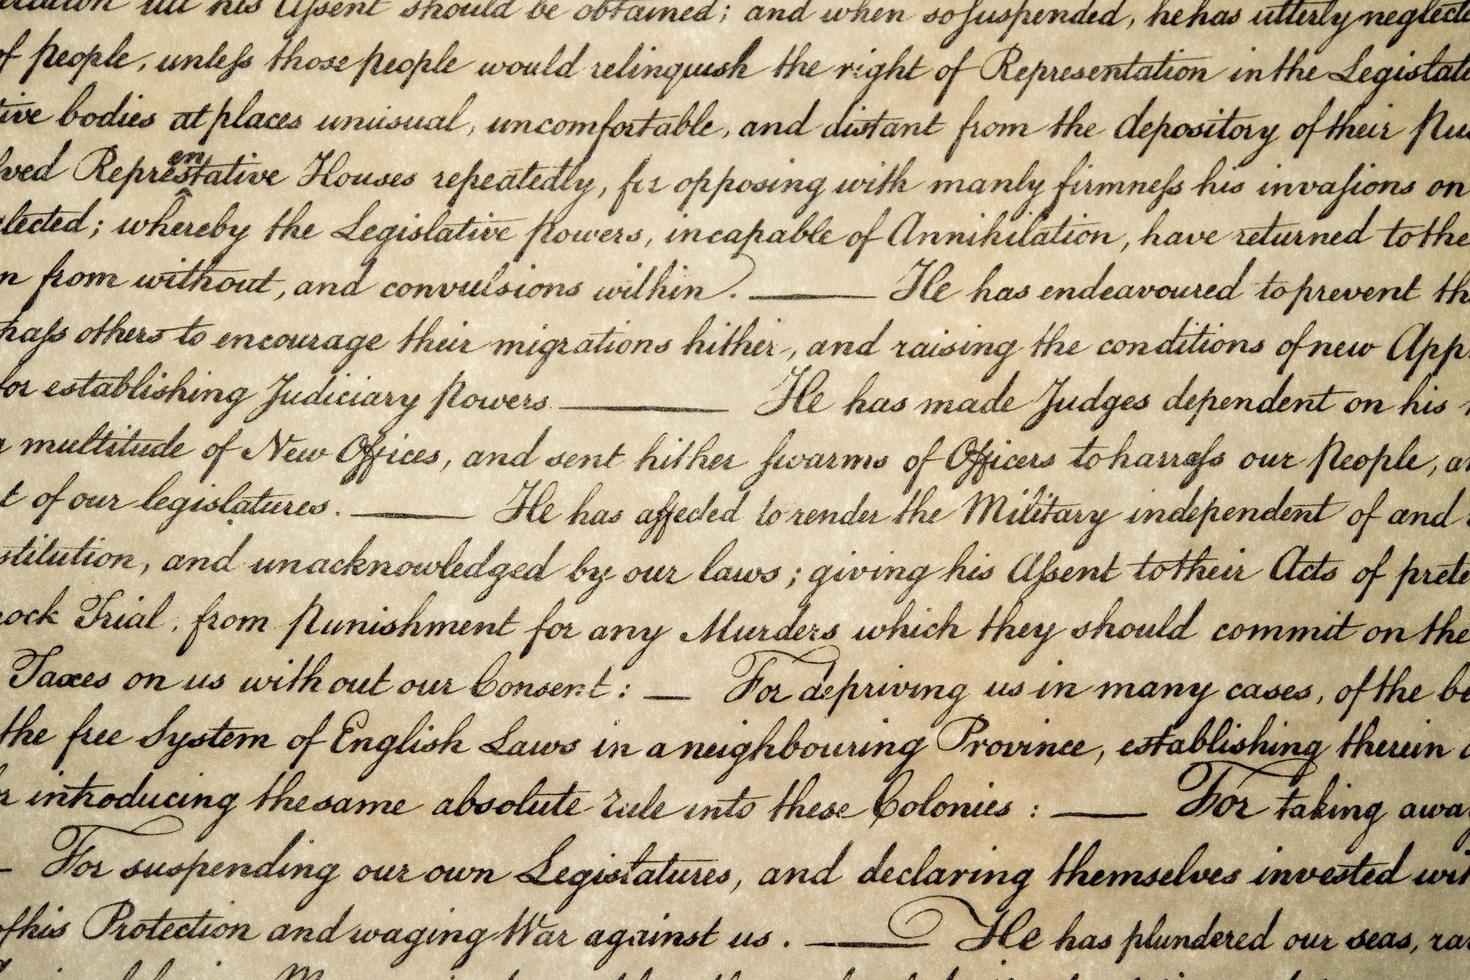 till his Aſsent should be obtained; and when so suspended, he has utterly neglecte
of people, unleſs those people would relinquish the right of Representation in the Legislat
tive bodies at places unusual, uncomfortable, and distant from the depository of their Pu
lved Represtative Houses repeatedly, for opposing with manly firmneſs his invaſions on
en
lected; whereby the Legislative powers, incapable of Annihilation, have returned to the
n from without, and convulsions within. — He has endeavoured to prevent th
paſs others to encourage their migrations hither, and raising the conditions of new App
for establishing Judiciary powers. — He has made Judges dependent on his
a multitude of New Offices, and sent hither ſwarms of Officers to harraſs our People, a
t of our legislatures. — He has affected to render the Military independent of and
stitution, and unacknowledged by our laws; giving his Aſsent to their Acts of prete
mock Trial, from Punishment for any Murders which they should commit on the
Taxes on us without our Consent: — For depriving us in many cases, of the be
the free System of English Laws in a neighbouring Province, establishing therein a
r introducing the same absolute rule into these Colonies: — For taking awa
— For suspending our own Legislatures, and declaring themselves invested wit
of his Protection and waging War against us. — He has plundered our seas, ra